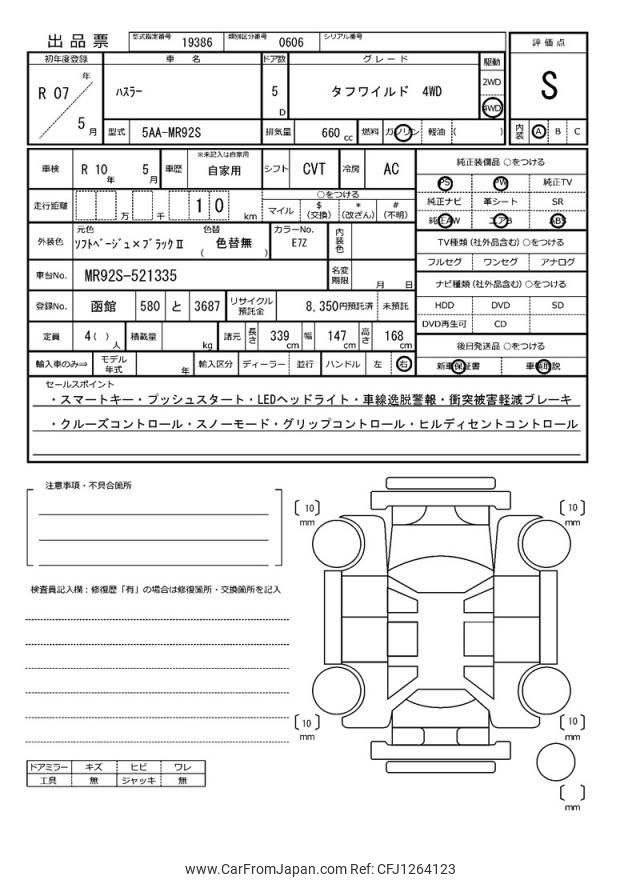 出品票 型式指定番号 19386 類別区分番号 0606 シリアル番号
評価点
S
初年度登録 車名 ドア数 グレード 駆動
R 07 年 5 月 ハスラー 5 D タフワイルド 4WD 2WD 4WD
型式 5AA-MR92S 排気量 660 cc 燃料 ガソリン 軽油 ( ) 内装 A B C
車検 R 10 年 5 月 車歴 ※未記入は自家用 自家用 シフト CVT 冷房 AC
純正装備品 ○をつける
PS PW 純正TV
純正ナビ 革シート SR
純正AW エアB ABS
走行距離 万 千 1 0 km ○をつける
マイル $ (交換) * (改ざん) # (不明)
外装色 元色 ソフトベージュ×ブラックⅡ 色替 ( 色替無 ) カラーNo. E7Z 内装色
TV種類 (社外品含む) ○をつける
フルセグ ワンセグ アナログ
車台No. MR92S-521335 名変期限 月 日
ナビ種類 (社外品含む) ○をつける
HDD DVD SD
DVD再生可 CD
登録No. 函館 580 と 3687 リサイクル預託金 8,350円預託済 未預託
定員 4( ) 人 積載量 kg 諸元 長さ 339 cm 幅 147 cm 高さ 168 cm
後日発送品 ○をつける
新車保証書 車輌取説
輸入車のみ⇒ モデル年式 年 輸入区分 ディーラー 並行 ハンドル 左 右
セールスポイント
・スマートキー・プッシュスタート・LEDヘッドライト・車線逸脱警報・衝突被害軽減ブレーキ
・クルーズコントロール・スノーモード・グリップコントロール・ヒルディセントコントロール
注意事項・不具合箇所
〔 10 〕 mm
〔 10 〕 mm
検査員記入欄：修復歴「有」の場合は修復箇所・交換箇所を記入
〔 10 〕 mm
〔 10 〕 mm
ドアミラー キズ ヒビ ワレ
工具 無 ジャッキ 無
〔 〕 mm
www.CarFromJapan.com Ref: CFJ1264123